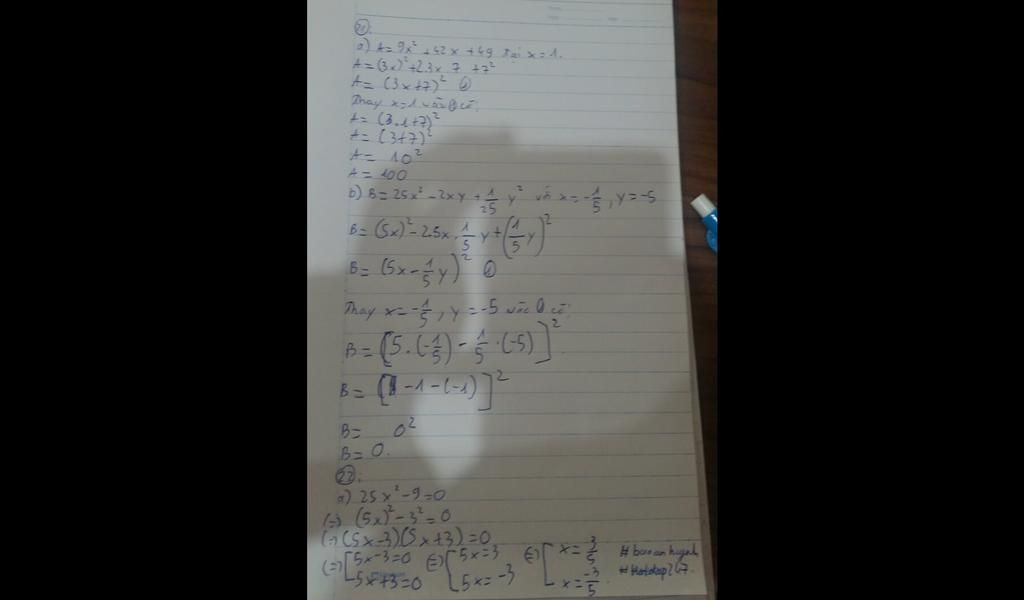 21:
a) A = 9x² + 42x + 49 tại x = 1.
A = (3x)² + 2.3x.7 + 7²
A = (3x+7)² ①
Thay x = 1 vào ① có:
A = (3.1+7)²
A = (3+7)²
A = 10²
A = 100
b) B = 25x² - 2xy + 1/25 y² với x = -1/5, y = -5
B = (5x)² - 2.5x.1/5 y + (1/5 y)²
B = (5x - 1/5 y)² ①
Thay x = -1/5, y = -5 vào ① có:
B = [5.(-1/5) - 1/5.(-5)]²
B = [-1-(-1)]²
B = 0²
B = 0.
22:
a) 25x² - 9 = 0
(=) (5x)² - 3² = 0
(=) (5x-3)(5x+3) = 0
(=) [5x-3=0 (=) [5x=3 (=) [x = 3/5
5x+3=0 5x=-3 x = -3/5